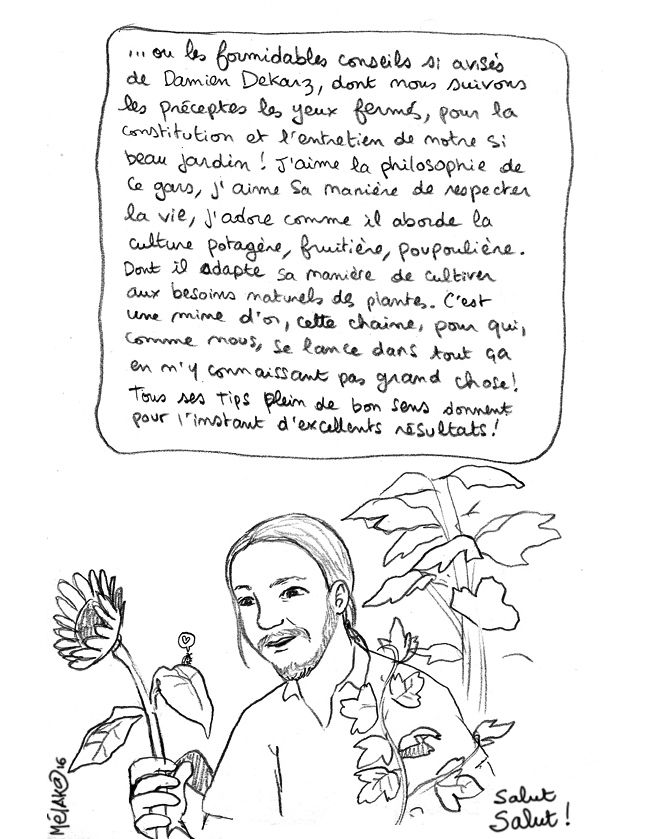 ... ou les formidables conseils si avisés
de Damien Dekarz, dont nous suivons
les préceptes les yeux fermés, pour la
constitution et l'entretien de notre si
beau jardin ! J'aime la philosophie de
ce gars, j'aime sa manière de respecter
la vie, j'adore comme il aborde la
culture potagère, fruitière, poupoulière.
Dont il adapte sa manière de cultiver
aux besoins naturels des plantes. C'est
une mine d'or, cette chaine, pour qui,
comme nous, se lance dans tout ça
en n'y connaissant pas grand chose !
Tous ses tips plein de bon sens donnent
pour l'instant d'excellents résultats !
Salut
Salut !
MÉLAK@16